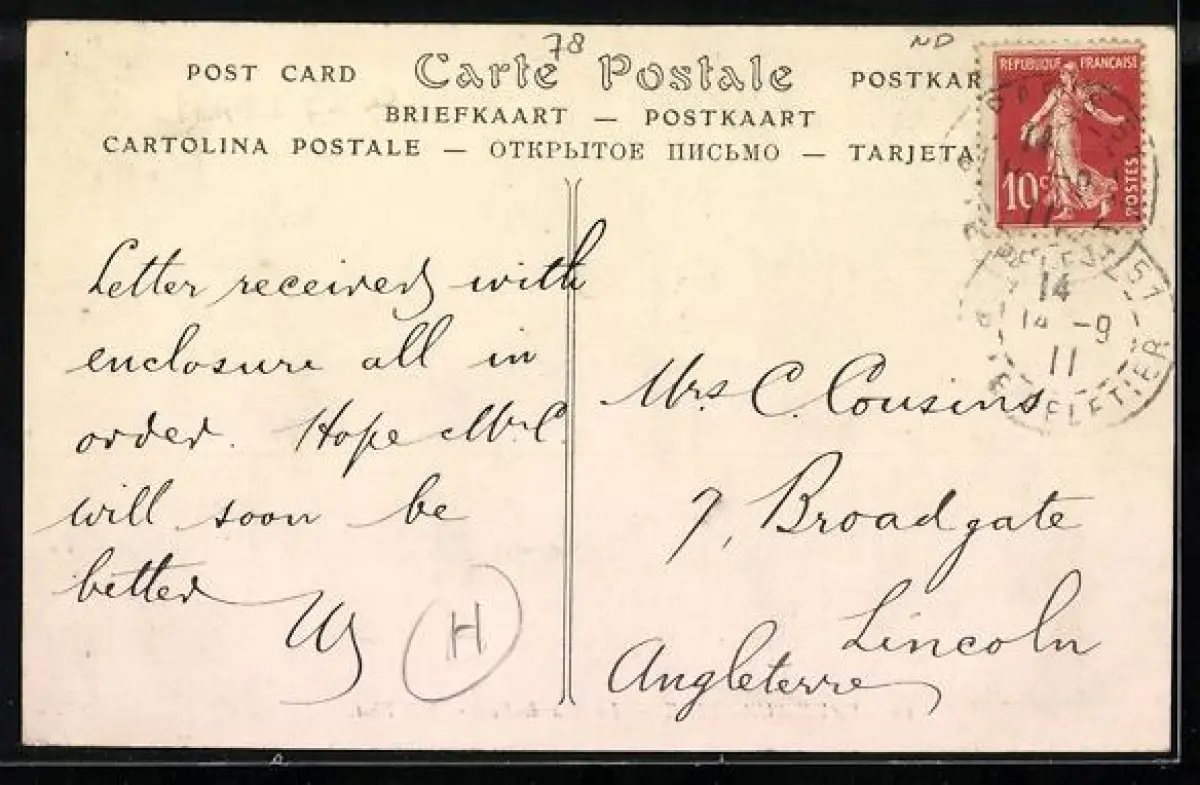 78
ND
POST CARD Carte Postale POSTKAR
BRIEFKAART — POSTKAART
CARTOLINA POSTALE — ОТКРЫТОЕ ПИСЬМО — TARJETA
REPUBLIQUE FRANÇAISE
10c
POSTES
51
14
14 -9
11
Letter received with
enclosure all in
order. Hope Mr C.
will soon be
better
H
Mrs C. Cousins
7, Broadgate
Lincoln
Angleterre